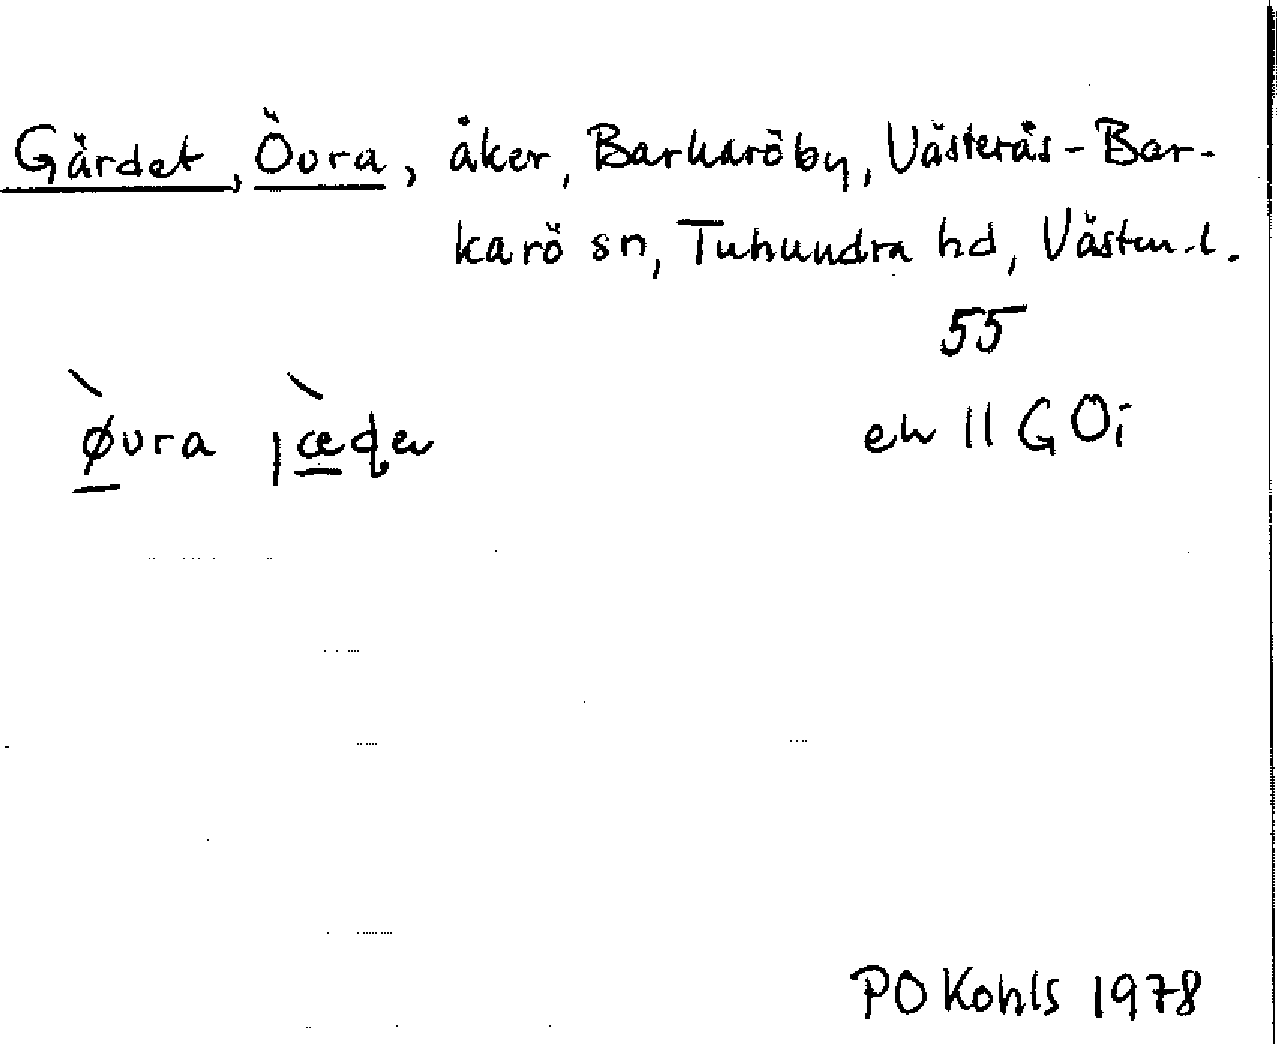 Gärdet, Övra, åker, Barkaröby, Västerås-Bar-
karö sn, Tuhundra hd, Västm.l.
55
øvra jæɖeɴ
ek 11 G Oi
PO Kohls 1978